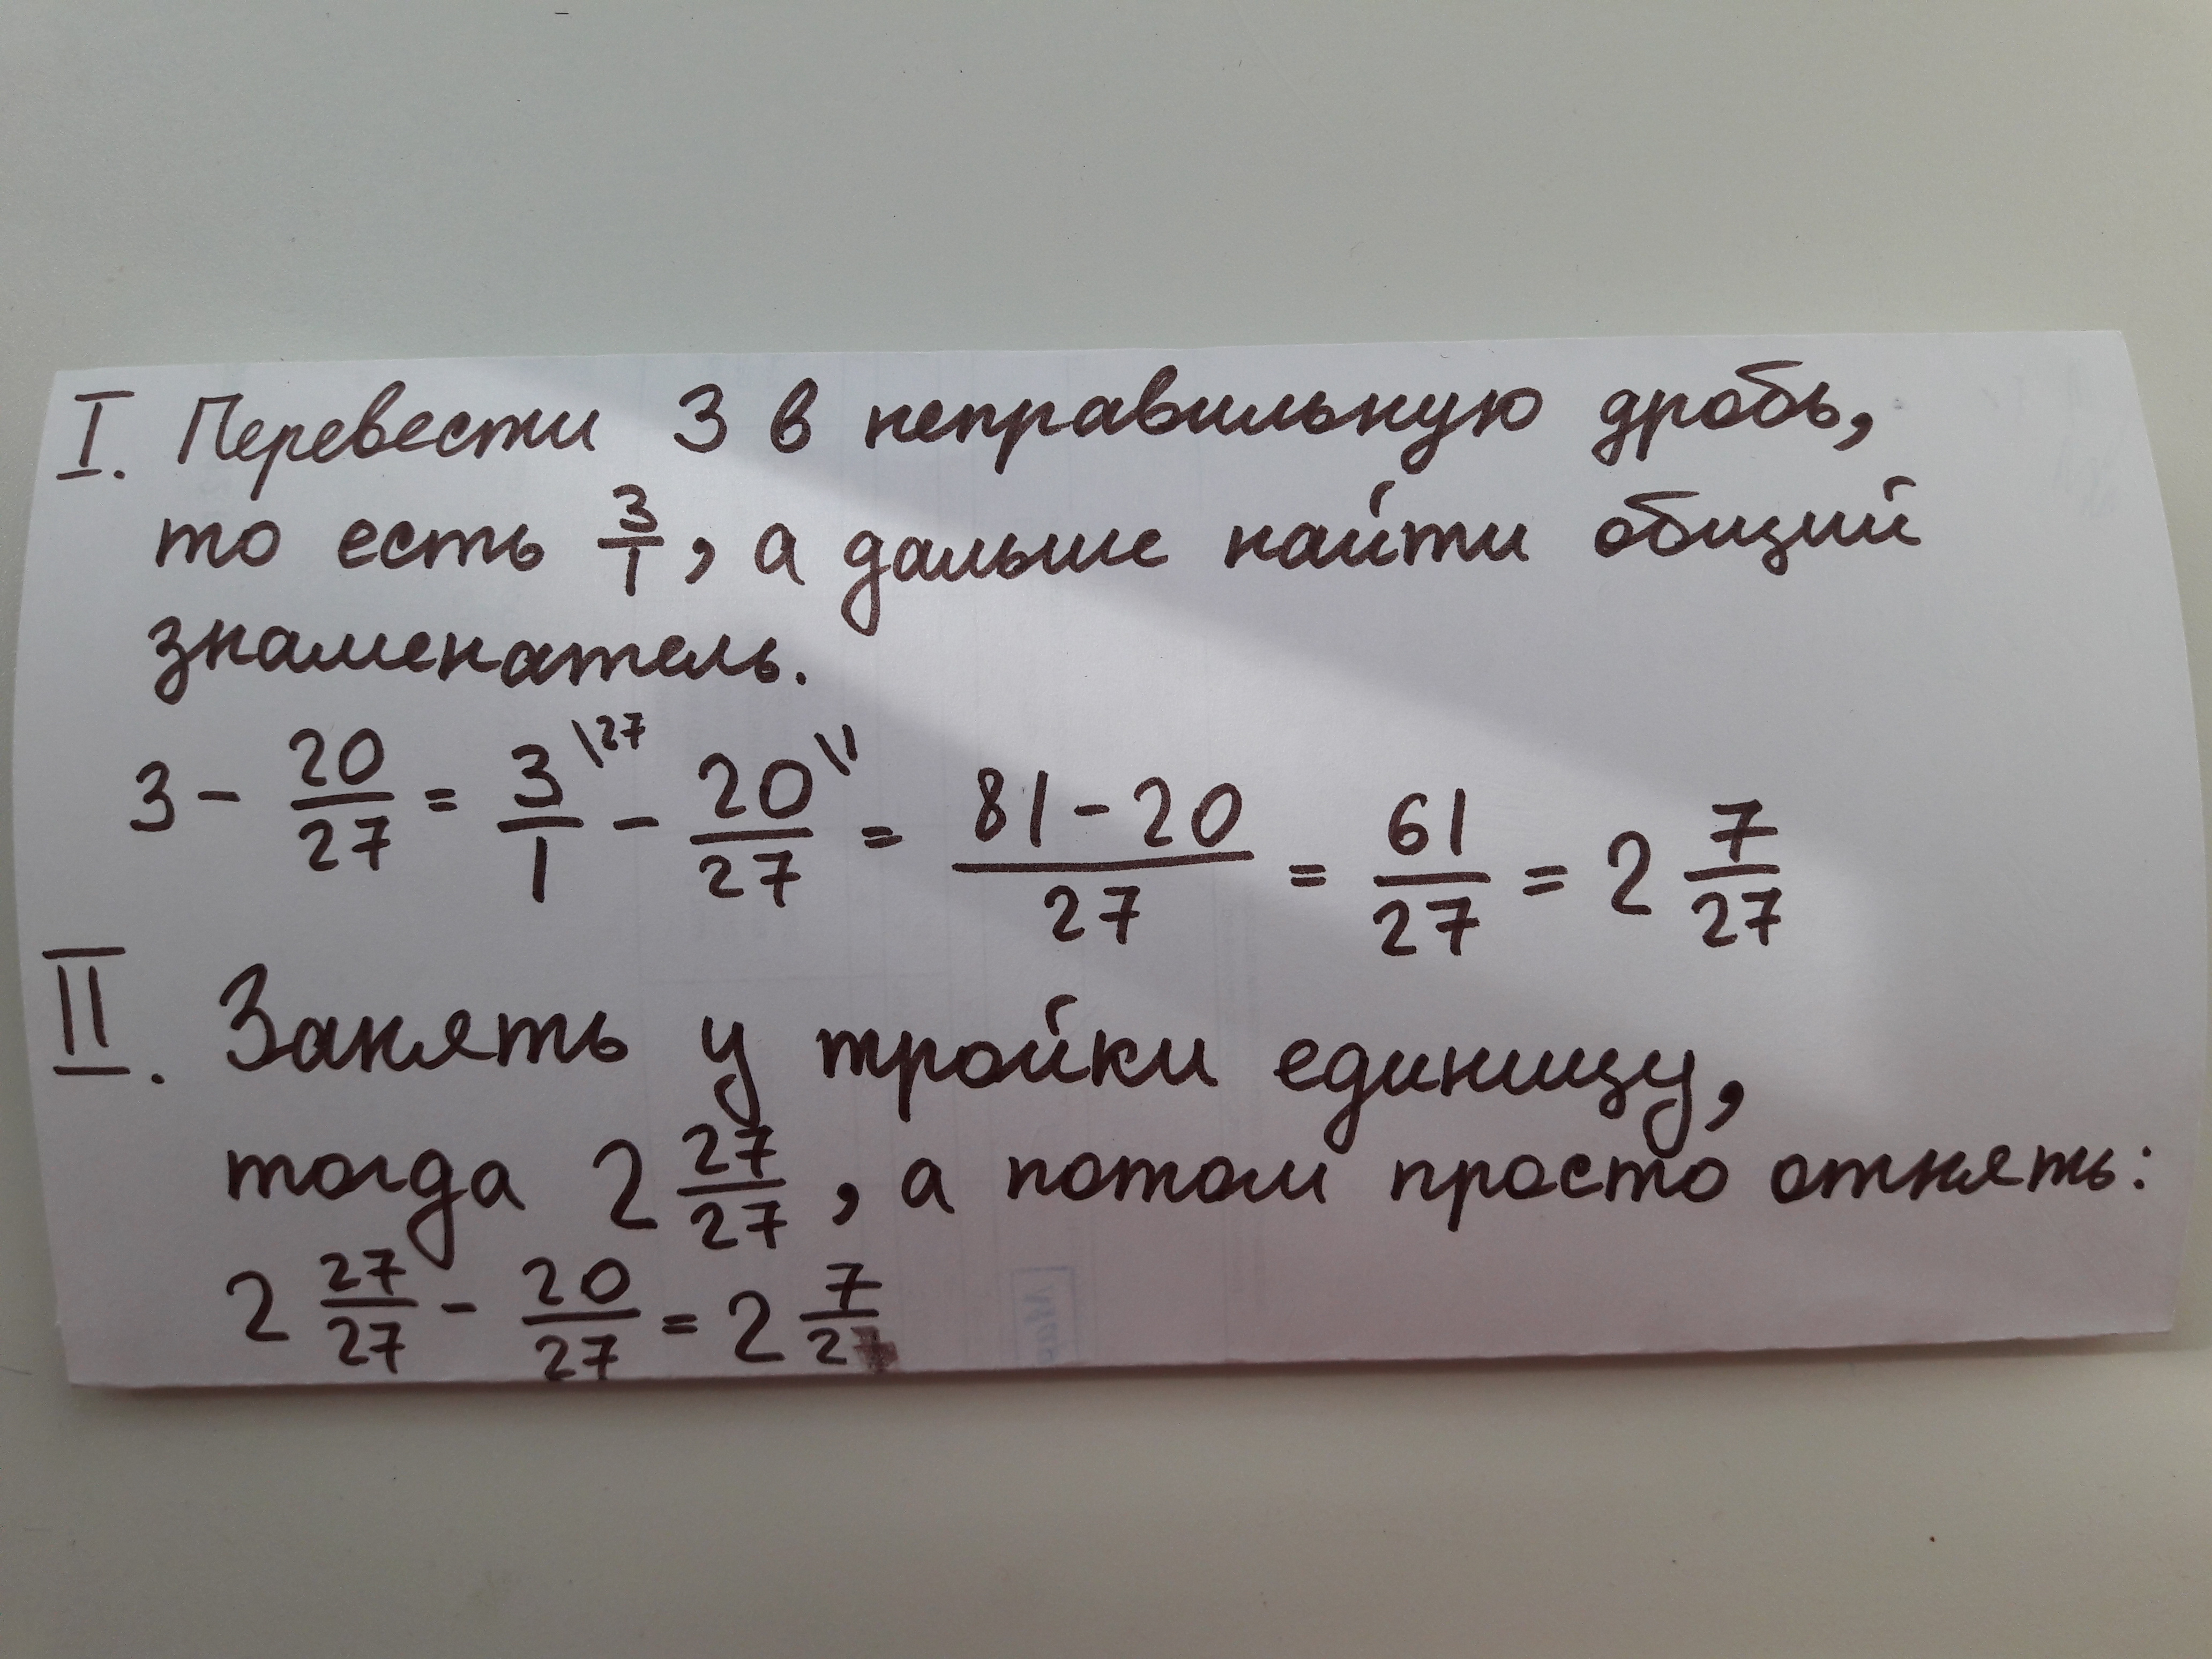 I. Перевести 3 в неправильную дробь,
то есть 3/1, а дальше найти общий
знаменатель.
3 - 20/27 = 3\27/1 - 20\1/27 = 81-20/27 = 61/27 = 2 7/27
II. Занять у тройки единицу,
тогда 2 27/27, а потом просто отнять:
2 27/27 - 20/27 = 2 7/27